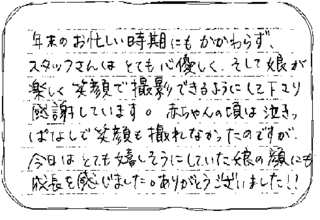 年末のお忙しい時期にもかかわらず、
スタッフさんはとても心優しく、そして娘が
楽しく笑顔で撮影できるようにして下さり
感謝しています。赤ちゃんの頃は泣きっ
ぱなしで笑顔も撮れなかったのですが、
今日はとても嬉しそうにしていた娘の顔にも
成長を感じました。ありがとうございました!!